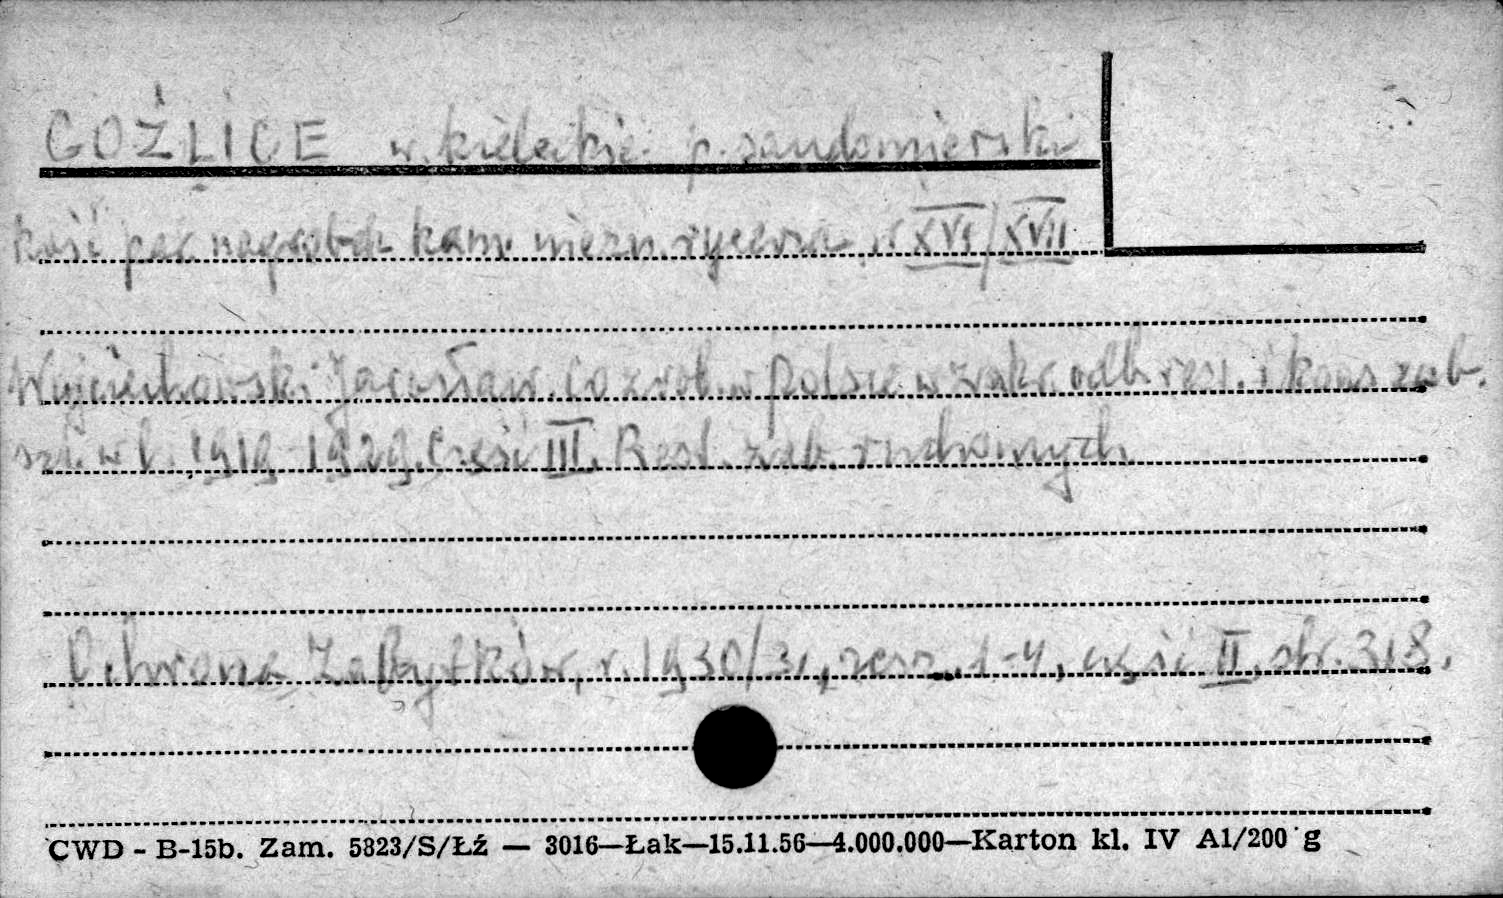 GOŹLICE w. kieleckie p. sandomierski
kość par. nagrobek kam. niezn. rycerza, w. XVI/XVII
Wojciechowski Jarosław. Co zrob. w Polsce w zakr. odb. rest. i kons. zab.
szt. w l. 1919-1929. Część III. Rest. zab. ruchomych
Ochrona Zabytków, r. 1930/31, zesz. 1-4, część II, str. 318.
CWD - B-15b. Zam. 5823/S/Łź — 3016—Łak—15.11.56—4.000.000—Karton kl. IV A1/200 g